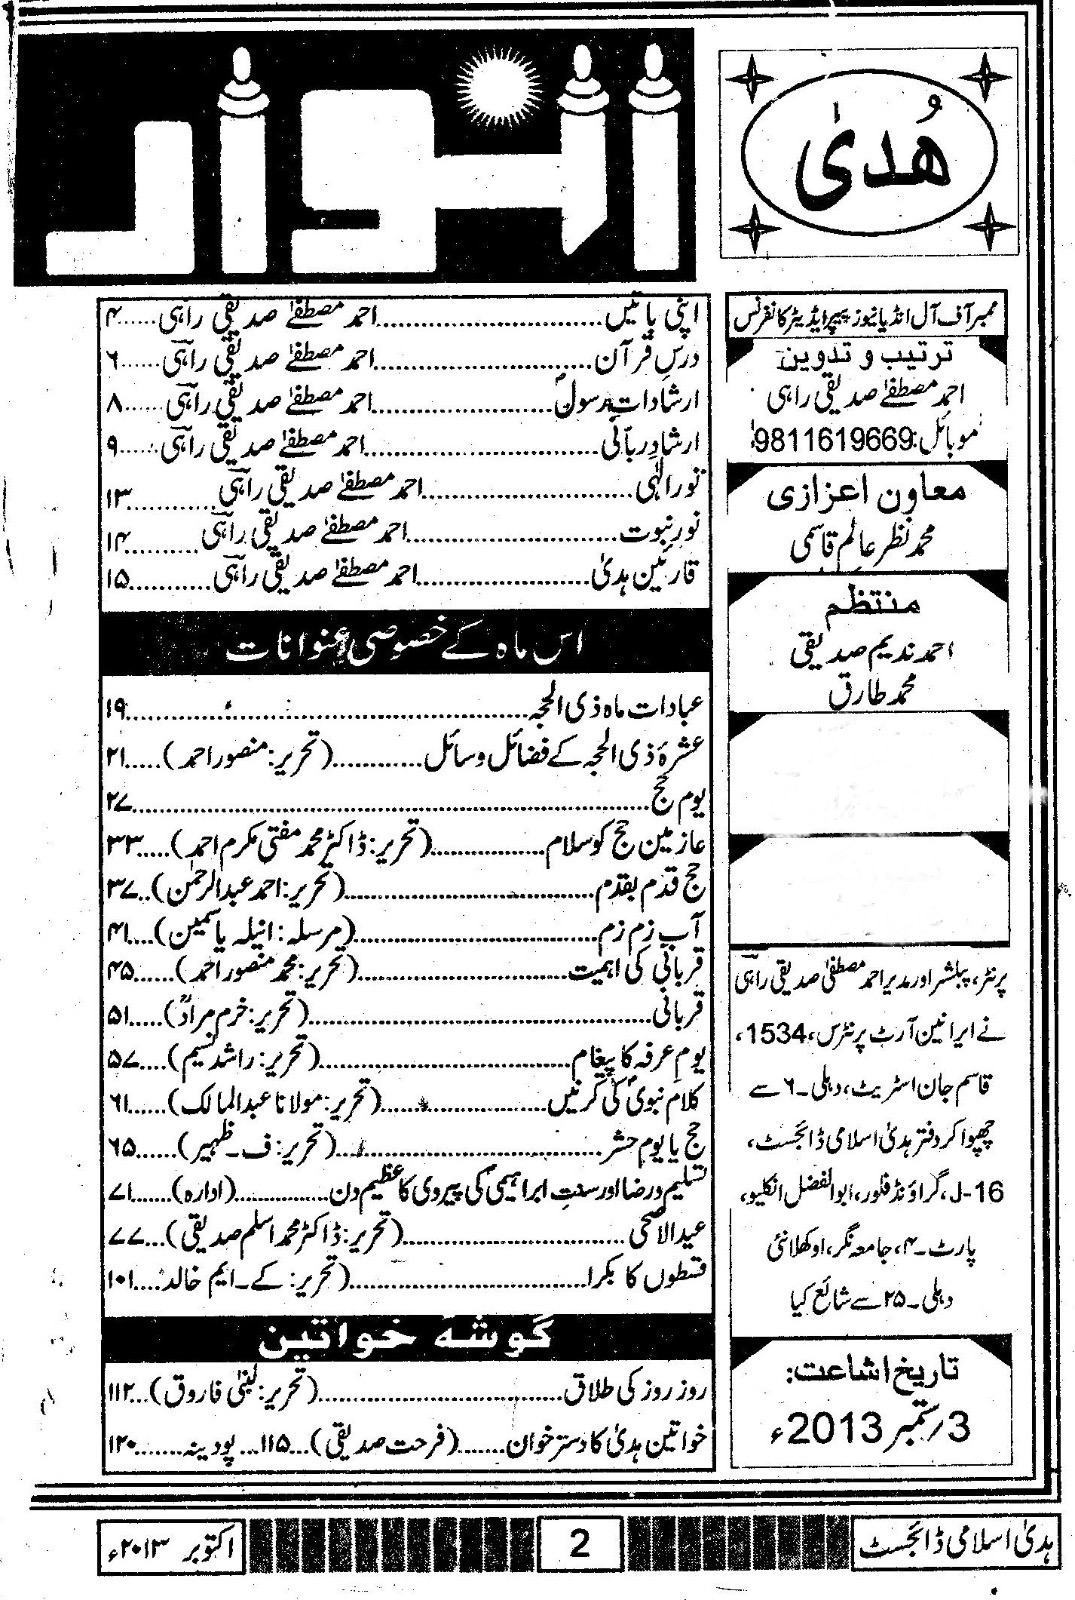 ھُدیٰ
انوار
ممبر آف آل انڈیا نیوز پیپر ایڈیٹر کانفرنس
ترتیب و تدوین
احمد مصطفےٰ صدیقی راہی
موبائل:9811619669
معاون اعزازی
محمد نظر عالم قاسمی
منتظم
احمد ندیم صدیقی
محمد طارق
پرنٹر، پبلشر اور مدیر احمد مصطفیٰ صدیقی راہی
نے ایرانین آرٹ پرنٹرس، 1534،
قاسم جان اسٹریٹ، دہلی۔۶ سے
چھپوا کر دفتر ہدیٰ اسلامی ڈائجسٹ،
J-16، گراؤنڈ فلور، ابوالفضل انکلیو،
پارٹ۔۴، جامعہ نگر، اوکھلا نئی
دہلی۔۲۵ سے شائع کیا
تاریخ اشاعت:
3؍ستمبر 2013ء
اپنی باتیں..........احمد مصطفےٰ صدیقی راہی......۴
درسِ قرآن..........احمد مصطفےٰ صدیقی راہی......۶
ارشاداتِ رسولؐ..........احمد مصطفےٰ صدیقی راہی......۸
ارشادِ ربانی..........احمد مصطفےٰ صدیقی راہی......۹
نورِ الٰہی..........احمد مصطفےٰ صدیقی راہی..........۱۳
نورِ نبوت..........احمد مصطفےٰ صدیقی راہی..........۱۴
قارئین ہدیٰ..........احمد مصطفےٰ صدیقی راہی..........۱۵
اس ماہ کے خصوصی عنوانات
عبادات ماہ ذی الحجہ..........۱۹
عشرۂ ذی الحجہ کے فضائل و سائل..........(تحریر: منصور احمد).....۲۱
یوم حج..........۲۷
عازمین حج کو سلام..........(تحریر: ڈاکٹر محمد مفتی مکرم احمد).....۳۳
حج قدم بقدم..........(تحریر: احمد عبدالرحمٰن)..۳۷
آب زم زم..........(مرسلہ: انیلہ یاسمین)....۴۱
قربانی کی اہمیت..........(تحریر: محمد منصور احمد).....۴۵
قربانی..........(تحریر: خرم مرادؒ).....۵۱
یومِ عرفہ کا پیغام..........(تحریر: راشد نسیم).....۵۷
کلام نبویؐ کی کرنیں..........(تحریر: مولانا عبدالمالک).....۶۱
حج یا یوم حشر..........(تحریر: ف۔ظہیر)......۶۵
تسلیم و رضا اور سنتِ ابراہیمیؑ کی پیروی کا عظیم دن..........(ادارہ).....۷۱
عیدالاضحیٰ..........(تحریر: ڈاکٹر محمد اسلم صدیقی)...۷۷
قسطوں کا بکرا..........(تحریر: کے۔ایم خالد....۱۰۱
گوشہ خواتین
روز روز کی طلاق..........(تحریر: لبنیٰ فاروق)...۱۱۲
خواتین ہدیٰ کا دسترخوان.......(فرحت صدیقی)...۱۱۵... پودینہ.......۱۲۰
ہدیٰ اسلامی ڈائجسٹ
2
اکتوبر ۲۰۱۳ء